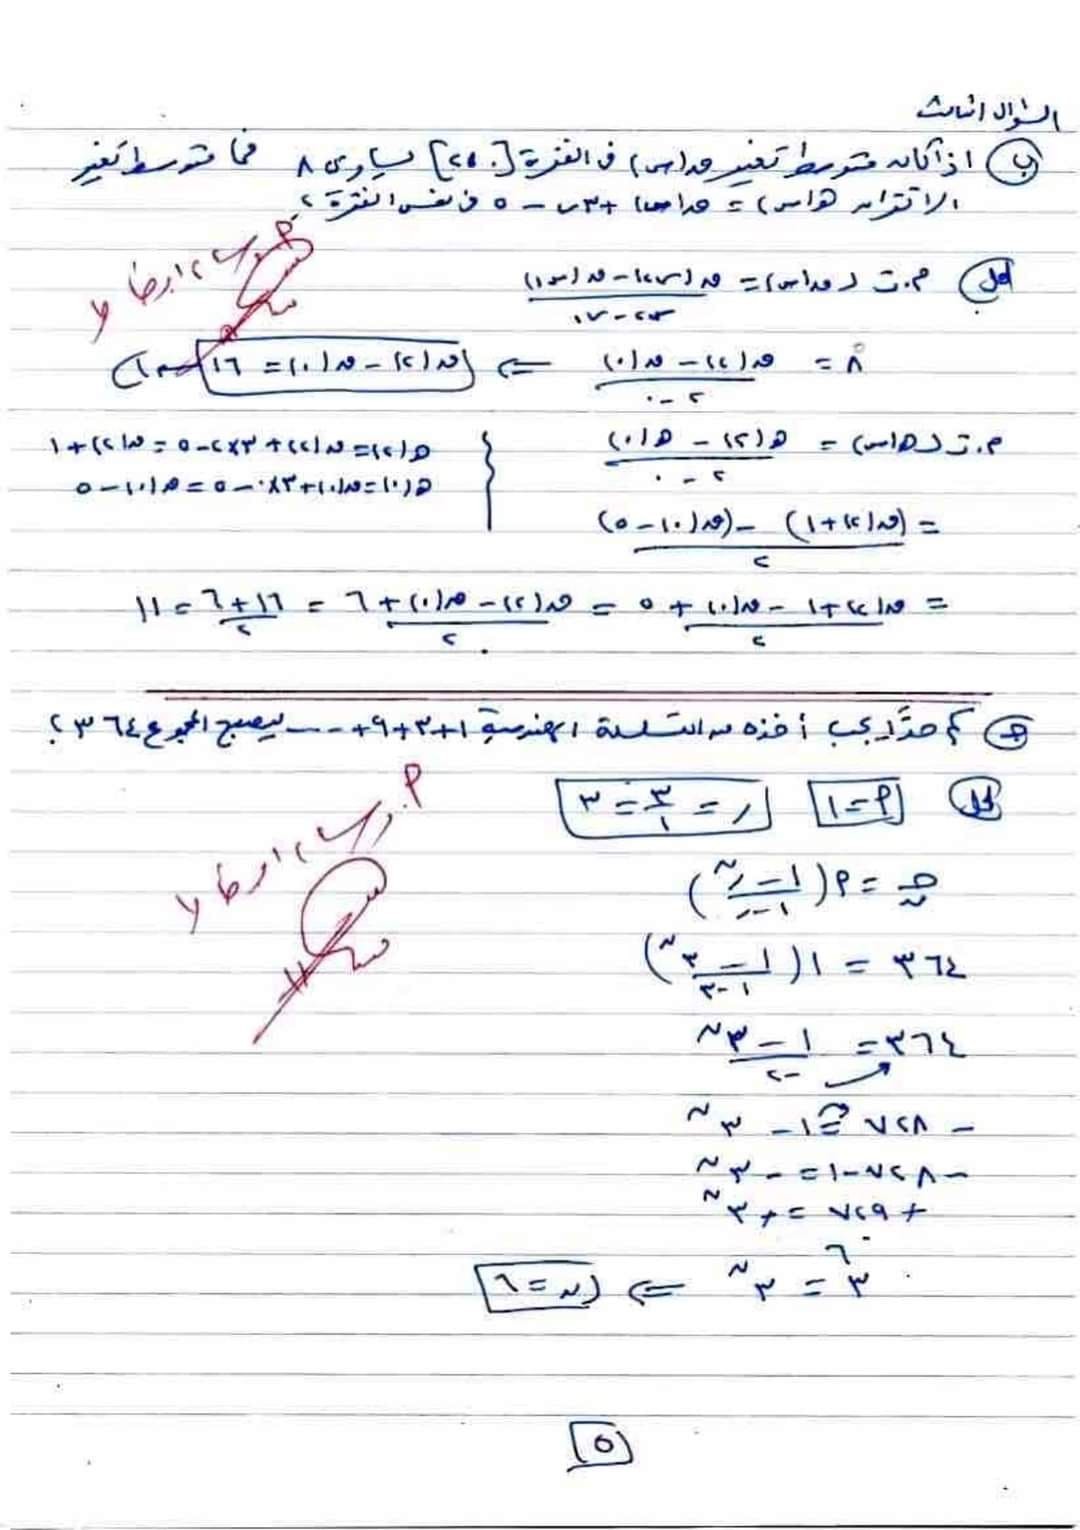 السؤال الثالث
ب) اذا كان متوسط تغير ق(س) في الفترة [٠، ٢] يساوي ٨ فما متوسط تغير
الاقتران هـ(س) = ق(س) + ٣س - ٥ في نفس الفترة؟
أ. رضا
الحل م.ت لـ ق(س) = ق(س٢) - ق(س١) / س٢ - س١
٨ = ق(٢) - ق(٠) / ٢ - ٠ ⇐ ق(٢) - ق(٠) = ١٦
م.ت لـ هـ(س) = هـ(٢) - هـ(٠) / ٢ - ٠
هـ(٢) = ق(٢) + ٣×٢ - ٥ = ق(٢) + ١
هـ(٠) = ق(٠) + ٣×٠ - ٥ = ق(٠) - ٥
= (ق(٢) + ١) - (ق(٠) - ٥) / ٢
= ق(٢) + ١ - ق(٠) + ٥ / ٢ = ق(٢) - ق(٠) + ٦ / ٢ = ١٦ + ٦ / ٢ = ١١
جـ) كم حدًا يجب أخذه من المتسلسلة الهندسية ١+٣+٩+.... ليصبح المجموع ٣٦٤؟
الحل أ = ١ ر = ٣/١ = ٣
جـن = أ(١ - ر^ن / ١ - ر)
٣٦٤ = ١(١ - ٣^ن / ١ - ٣)
٣٦٤ = ١ - ٣^ن / -٢
- ٧٢٨ = ١ - ٣^ن
- ٧٢٨ - ١ = - ٣^ن
+ ٧٢٩ = + ٣^ن
٣^٦ = ٣^ن ⇐ ن = ٦
٥